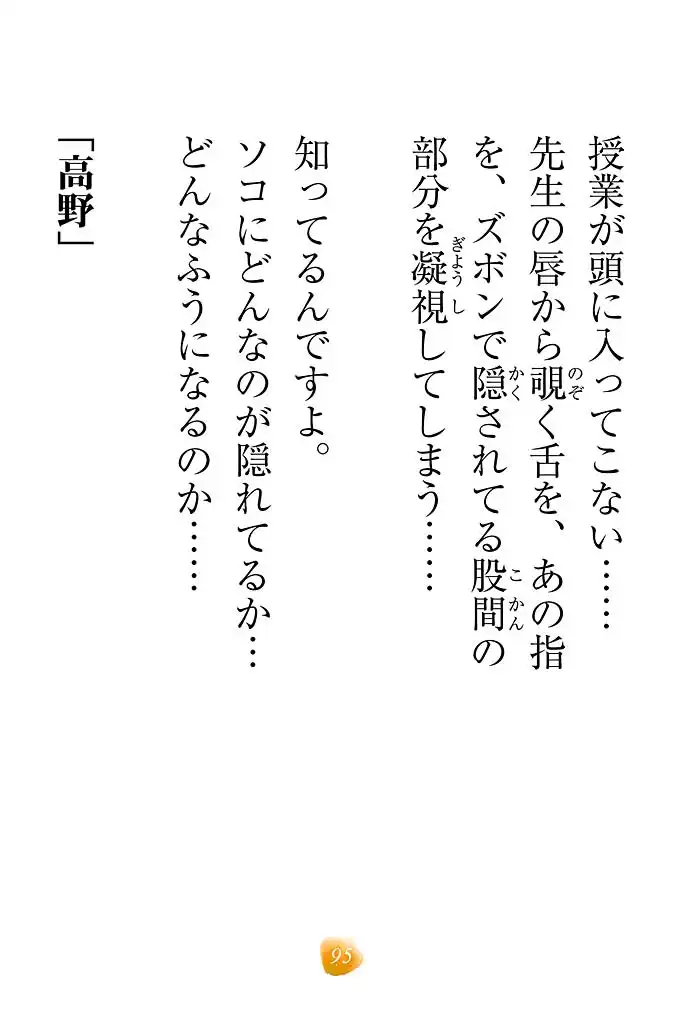 授業が頭に入ってこない……
先生の唇から覗く舌を、あの指
を、ズボンで隠されてる股間の
部分を凝視してしまう……
知ってるんですよ。
ソコにどんなのが隠れてるか…
どんなふうになるのか……
「高野」
95